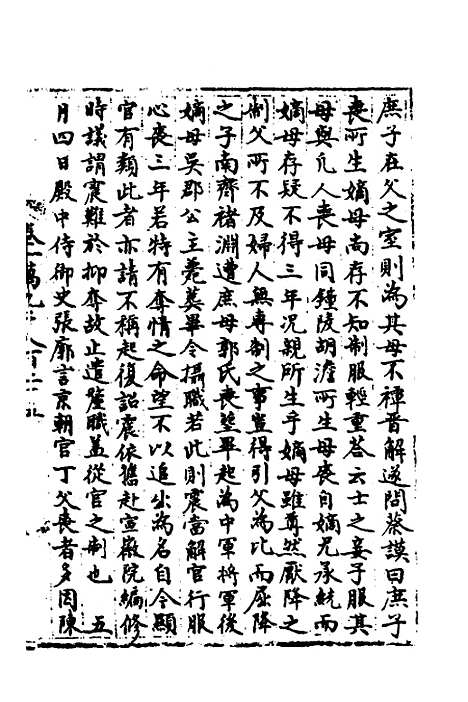 庶子在父之室則為其母不禫晉解遂問蔡謨曰庶子
喪所生嫡母尚存不知制服輕重荅云士之妾子服其
母與凢人喪母同鍾陵胡澹所生母喪自嫡兄承統而
嫡母存疑不得三年况親所生乎嫡母雖尊然厭降之
制父所不及婦人無專制之事豈得引父為比而屈降
之子南齊褚淵遭庶母郭氏喪塟畢起為中軍將軍後
嫡母吳郡公主薨塟畢令攝職若此則震當解官行服
心喪三年若特有奪情之命望不以追出為名自今顯
官有類此者亦請不稱起復詔震依舊赴宣徽院編修
時議謂震難於抑奪故止遣釐職盖從官之制也　五
月四日殿中侍御史張廓言京朝官丁父喪者多因陳
卷一萬九百二十